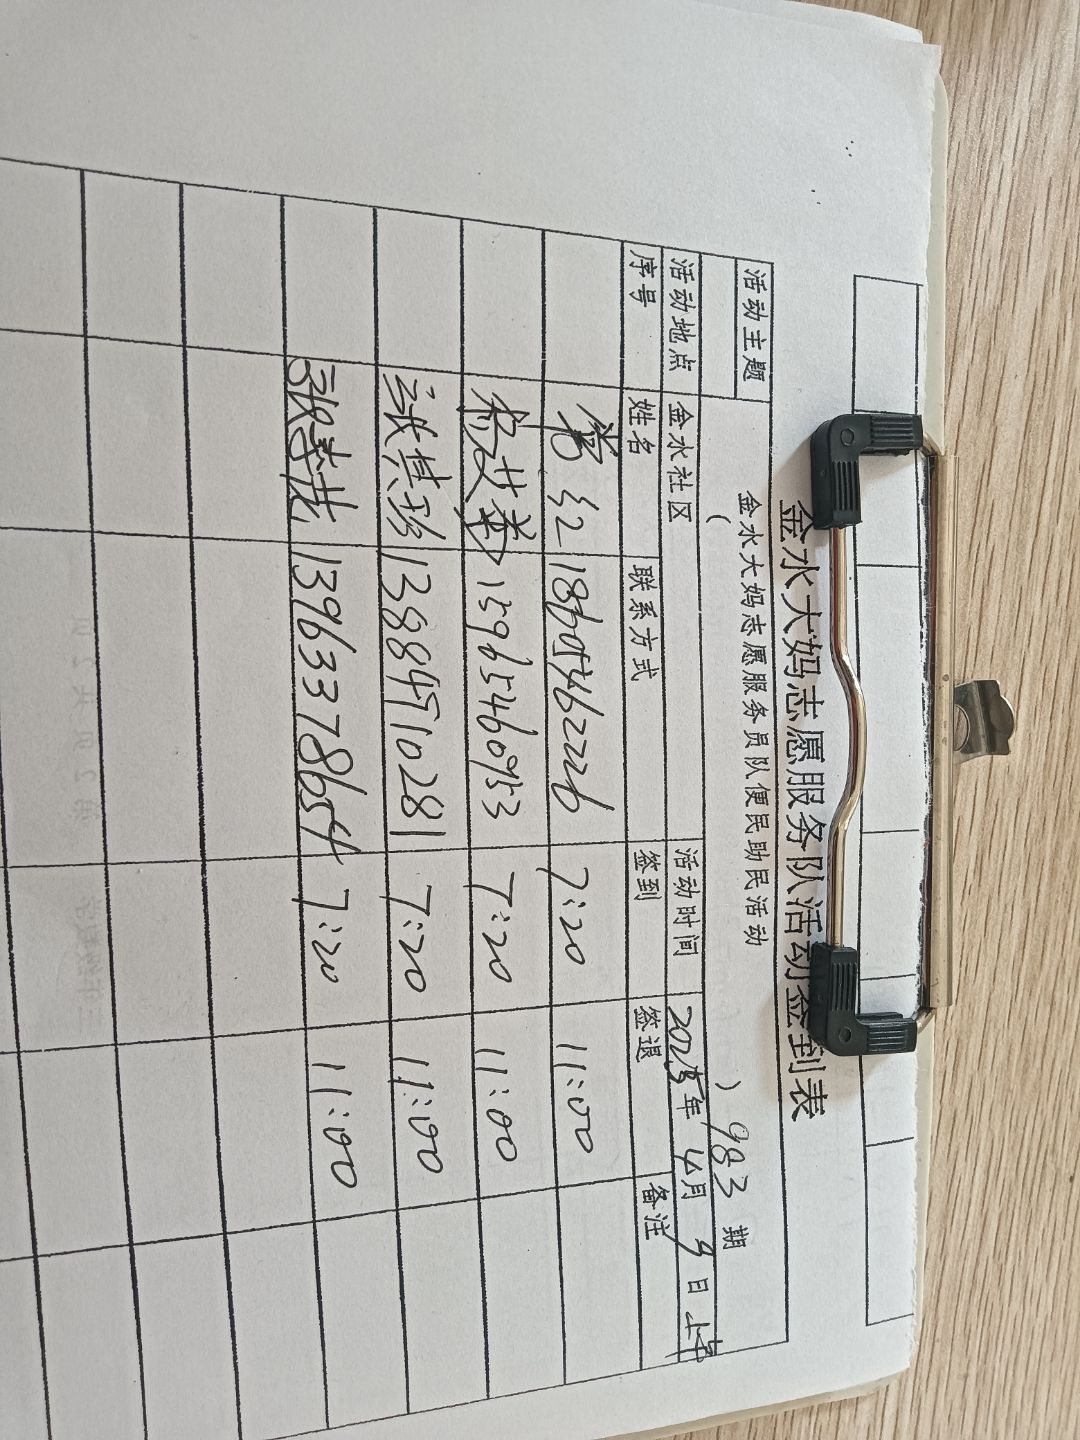 金水大妈志愿服务队活动签到表
活动主题 金水大妈志愿服务员队便民助民活动
( ) 983 期
活动地点 金水社区 活动时间 2025年 4月 9日 上午
序号 姓名 联系方式 签到 签退 备注
18605462226 7:20 11:00
15965460953 7:20 11:00
张其珍 138849710281 7:20 11:00
张孝花 13963378654 7:20 11:00